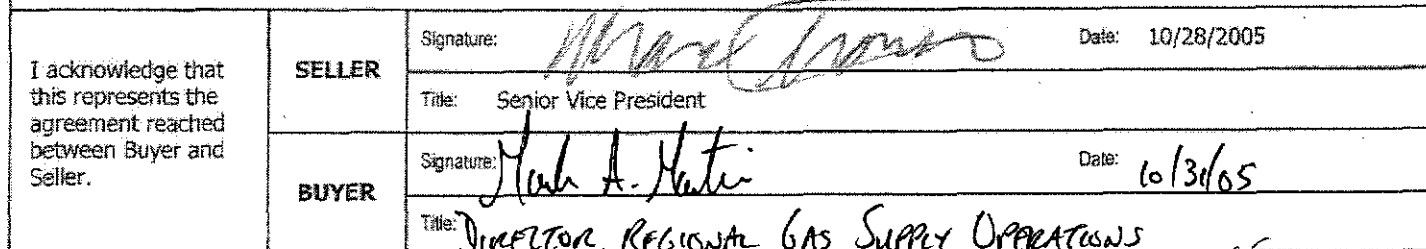 I acknowledge that
this represents the
agreement reached
between Buyer and
Seller.
SELLER
Signature: Date: 10/28/2005
Title: Senior Vice President
BUYER
Signature: Mark A. Martin Date: 10/31/05
Title: DIRECTOR REGIONAL GAS SUPPLY OPERATIONS